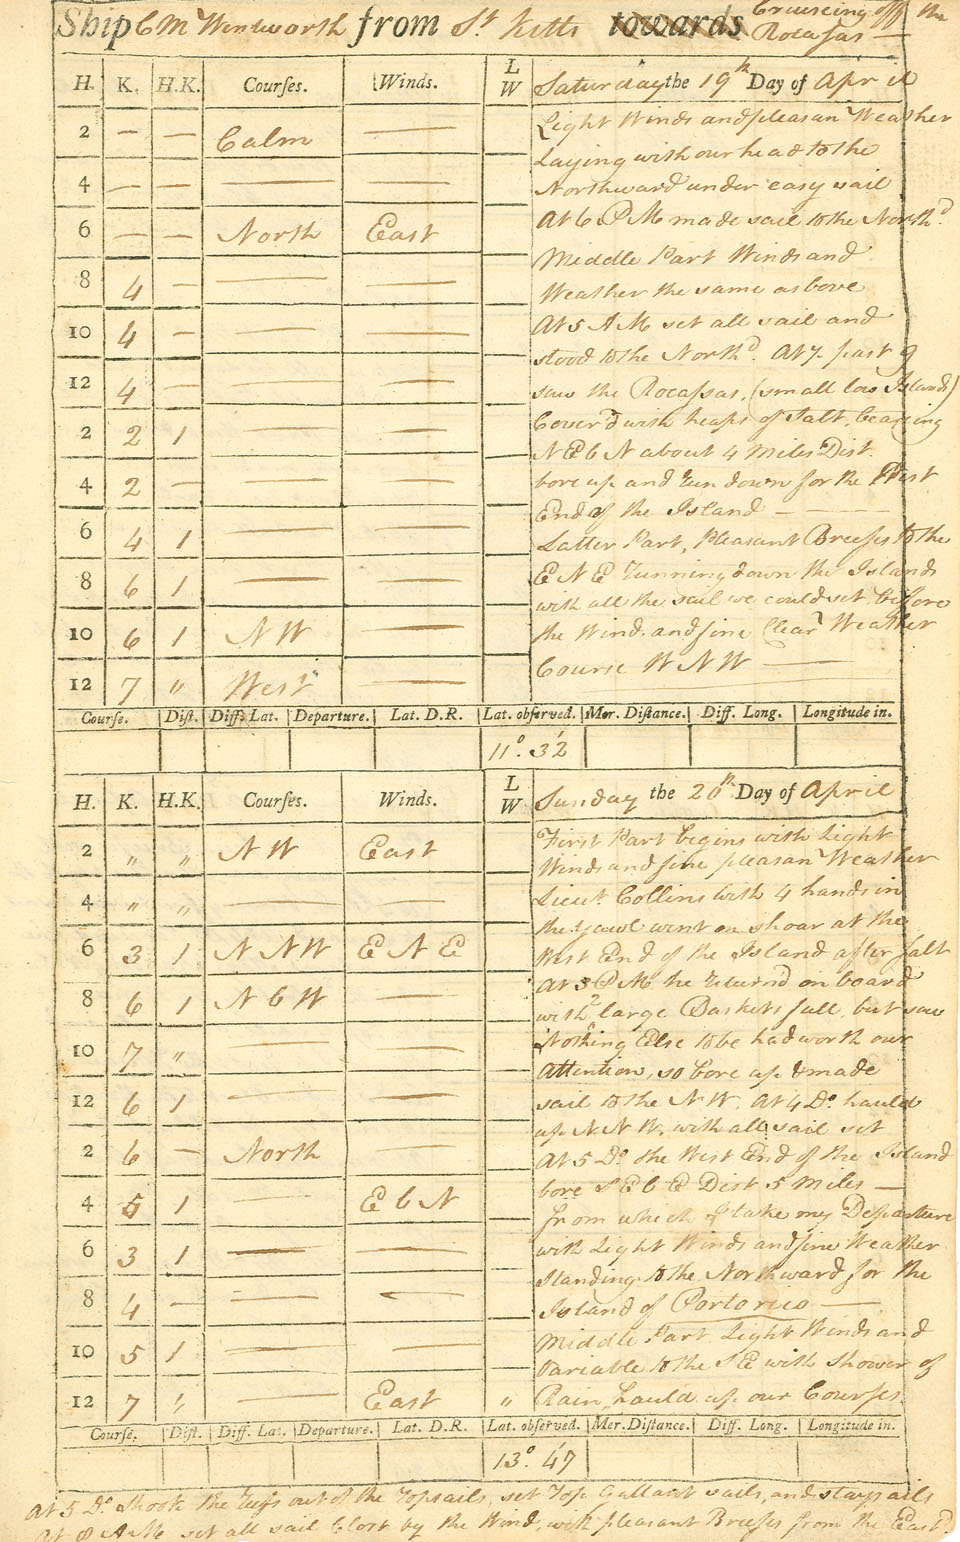 Ship C M Wentworth from St. Kitts towards Cruiseing off the
Rocassas —
H. K. H.K. Courses. Winds. L W Saturday the 19th Day of April
2 — — Calm —
4 — — — —
6 — — North East
8 4 — — —
10 4 — — —
12 4 — — —
2 2 1 — —
4 2 — — —
6 4 1 — —
8 6 1 — —
10 6 1 N W —
12 7 " West —
Light Winds and pleasant Weather
Laying with our head to the
Northward under easy sail
At 6 P M made sail to the Northd.
Middle Part Winds and
Weather the same as bove
At 5 A M set all sail and
stood to the Northd. At ½ past 9
saw the Rocassas, (small low Islands)
Cover'd with heaps of Salt, bearing
N E b N about 4 Miles Dist.
bore up and run down for the West
End of the Island —
Latter Part, Pleasant Breeses to the
E N E running down the Islands
with all the sail we could set before
the Wind and fine Clear Weather
Course W N W —
Course. Dist. Diff. Lat. Departure. Lat. D.R. Lat. observed. Mer. Distance. Diff. Long. Longitude in.
11°. 32'
H. K. H.K. Courses. Winds. L W Sunday the 20th Day of April
2 " " N W East
4 " " — —
6 3 1 N N W E N E
8 6 1 N b W —
10 7 " — —
12 6 1 — —
2 6 — North —
4 5 1 — E b N
6 3 1 — —
8 4 — — —
10 5 1 — —
12 7 " — East "
First Part begins with Light
Winds and fine pleasant Weather
Lieut. Collins with 4 hands in
the yawl went on shoar at the
West End of the Island after salt
At 3 P M he returnd on board
with 2 large Baskets full, but saw
Nothing Else to be had worth our
Attention, so bore up & made
sail to the N W. At 4 Do. hauld
up N N W, with all sail set
At 5 Do. the West End of the Island
bore S E b E Dist 5 Miles —
from which I take my Departure
with Light Winds and fine Weather
standing to the Northward for the
Island of Portorico —
Middle Part Light Winds and
Variable to the S E with shower of
Rain, hauld up our Courses.
Course. Dist. Diff. Lat. Departure. Lat. D.R. Lat. observed. Mer. Distance. Diff. Long. Longitude in.
13°. 47'
At 5 Do. Shook the reefs out of the Topsails, set Top Gallant sails, and staysails
At 8 A M set all sail Close by the Wind, with pleasant Breeses from the Eastd.